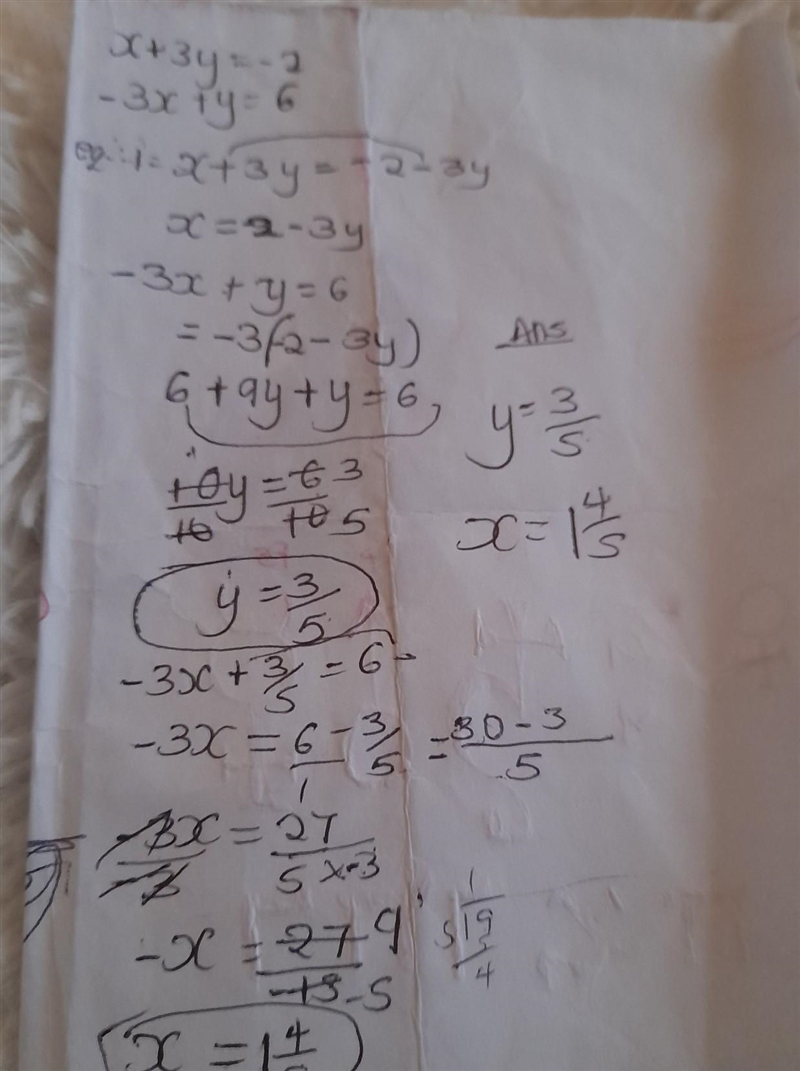 x+3y=-2
-3x+y=6
eq:1= x+3y=-2-3y
x=-2-3y
-3x+y=6
=-3(-2-3y)
6+9y+y=6
10y=6 3
10 10 5
y=3/5
-3x+3/5=6-
-3x=6/1-3/5=30-3/5
-3x=27
-3 5x-3
-x=27 9
-15-5
x=1 4
Ans
y=3/5
x=1 4/5
1
5 19
4